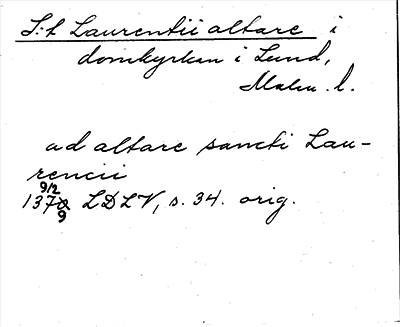 S:t Laurentii altare i
domkyrkan i Lund,
Malm. l.
ad altare sancti Lau-
rencii
9/2
1379 LDLV, s. 34. orig.